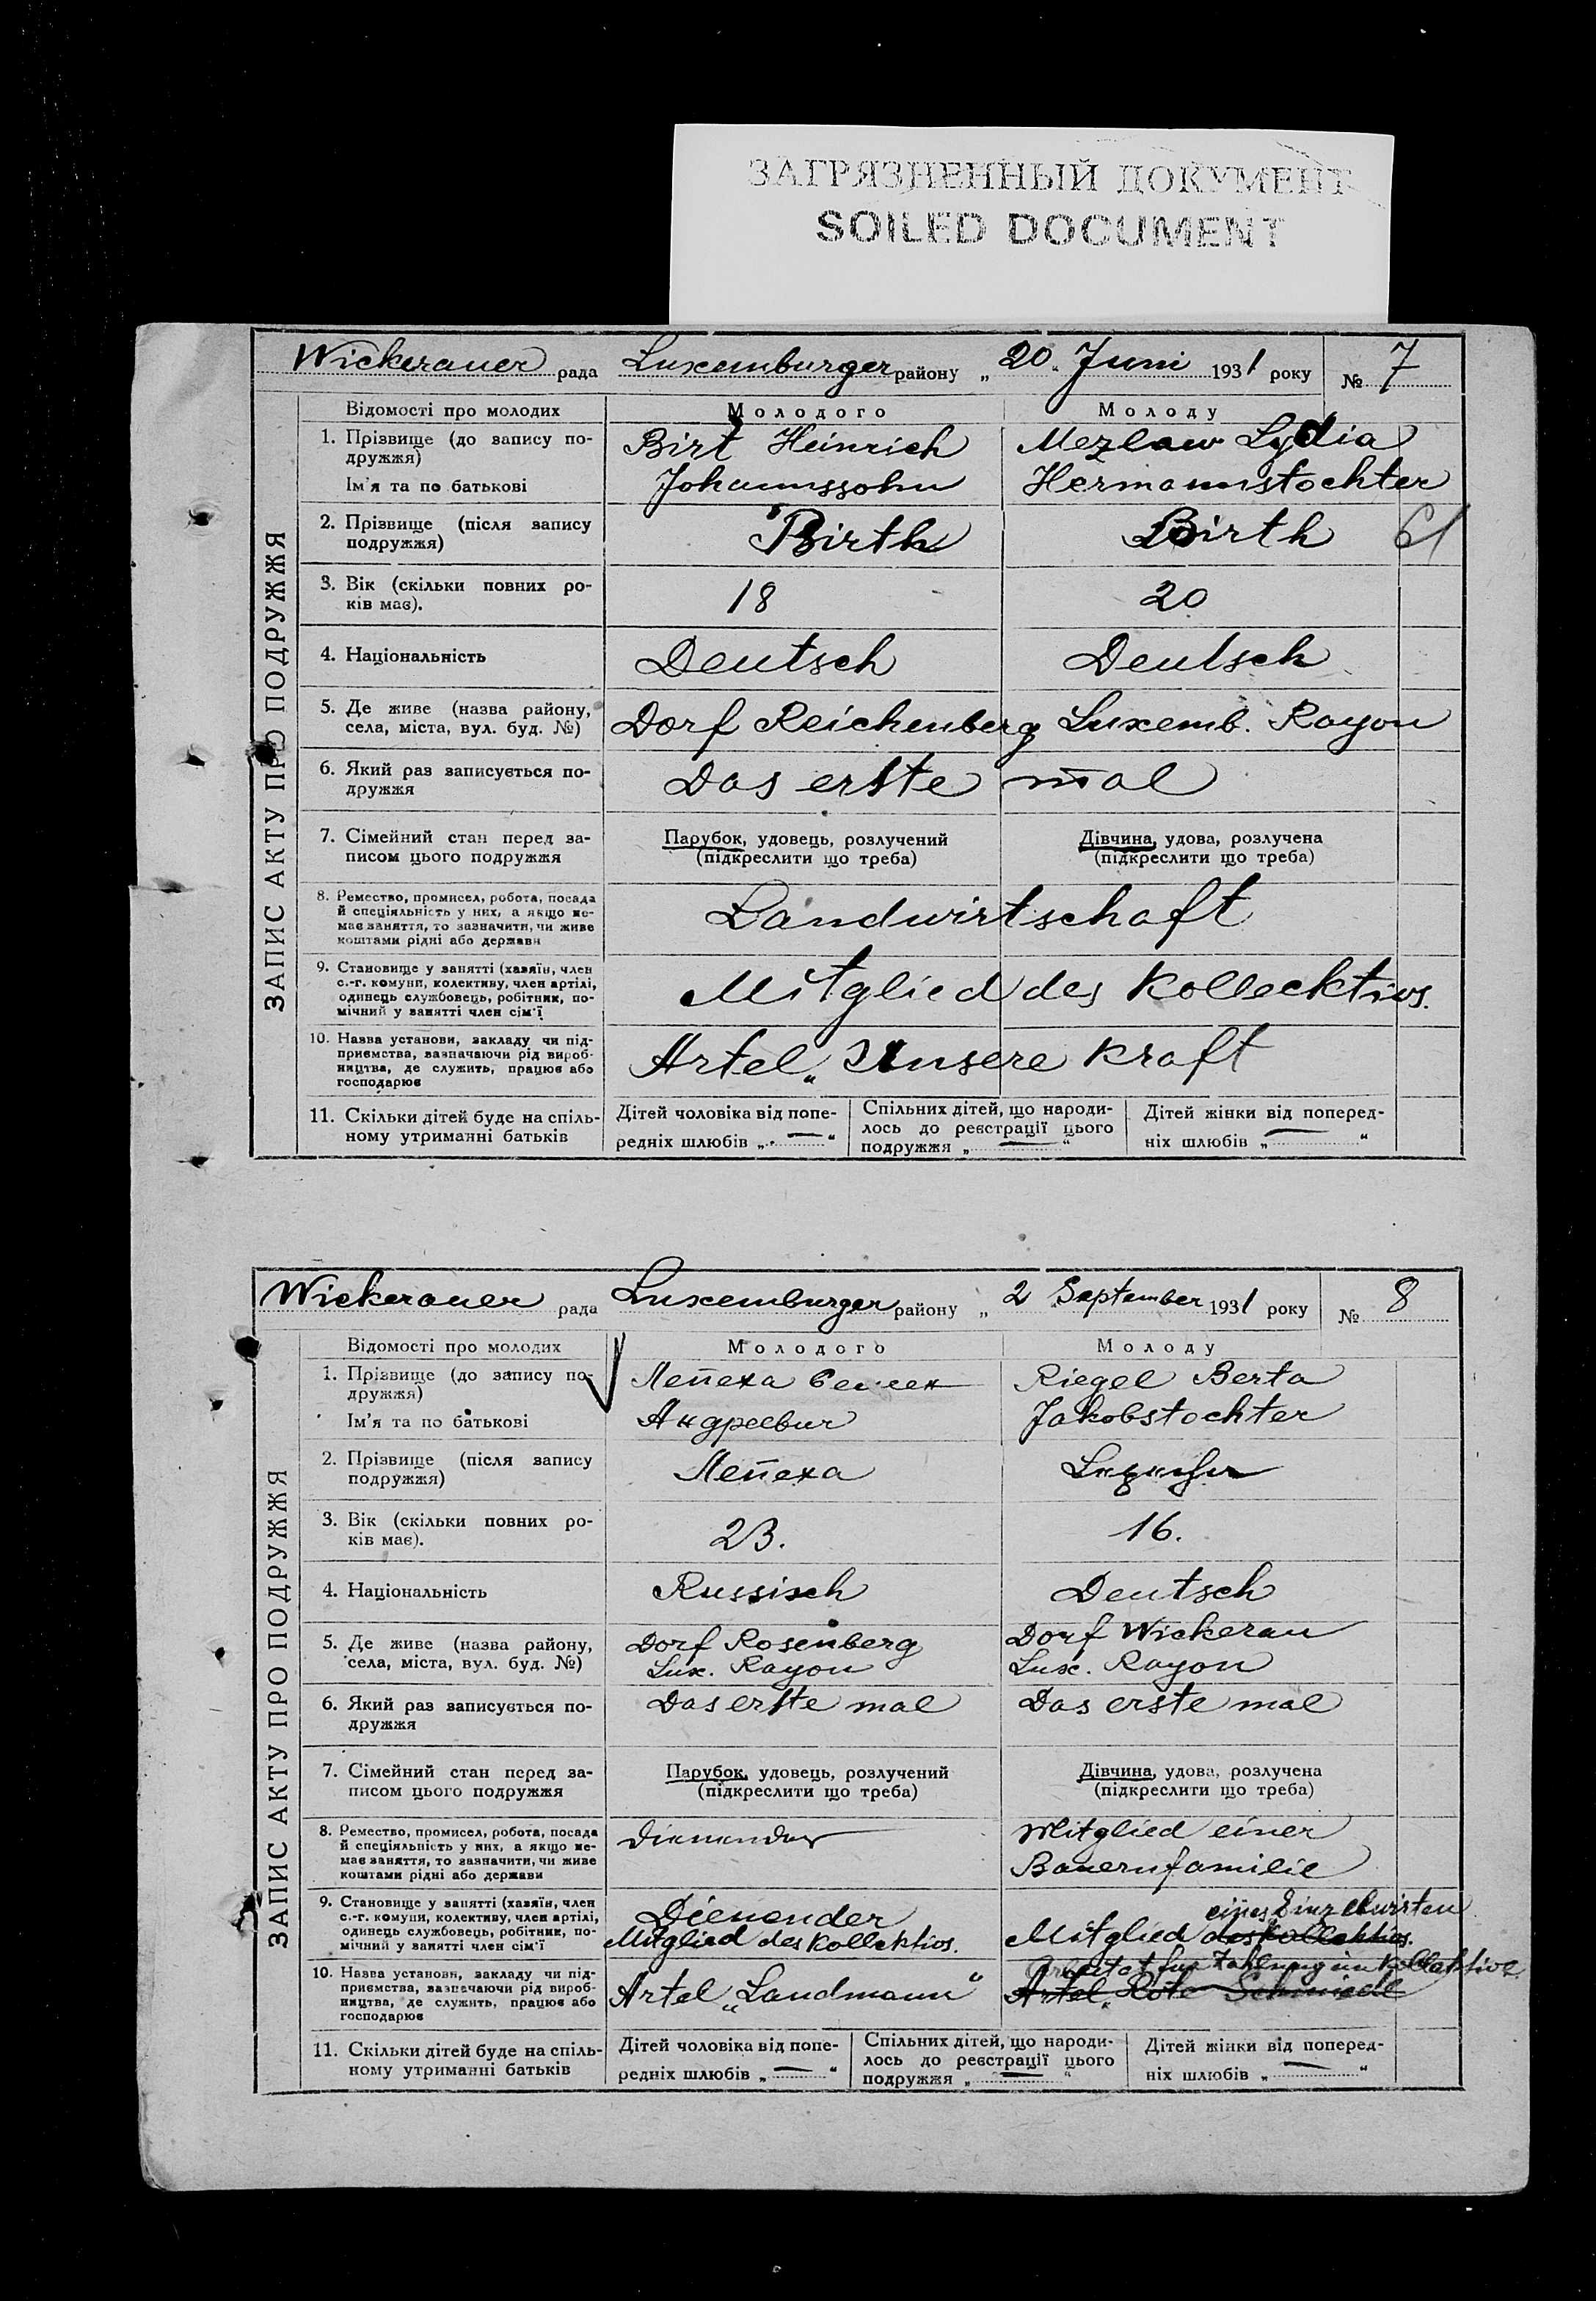 ЗАГРЯЗНЕННЫЙ ДОКУМЕНТ
SOILED DOCUMENT
Wickerauer рада Luxemburger району „ 20 " Juni 1931 року № 7
ЗАПИС АКТУ ПРО ПОДРУЖЖЯ
Відомості про молодих Молодого Молоду
1. Прізвище (до запису по-
дружжя)
Ім'я та по батькові
Birt Heinrich
Johannssohn
Mezlaw Lydia
Hermannstochter
2. Прізвище (після запису
подружжя)
Birth Birth 61
3. Вік (скільки повних ро-
ків має).
18 20
4. Національність Deutsch Deutsch
5. Де живе (назва району,
села, міста, вул. буд. №)
Dorf Reichenberg Luxemb. Rayon
6. Який раз записується по-
дружжя
Das erste mal
7. Сімейний стан перед за-
писом цього подружжя
Парубок, удовець, розлучений
(підкреслити що треба)
Дівчина, удова, розлучена
(підкреслити що треба)
8. Ремество, промисел, робота, посада
й спеціяльність у них, а якщо не-
має заняття, то зазначити, чи живе
коштами рідні або держави
Landwirtschaft
9. Становище у занятті (хазяїн, член
с.-г. комуни, колективу, член артілі,
одинець службовець, робітник, по-
мічний у занятті член сім'ї
Mitglied des Kollecktivs.
10. Назва установи, закладу чи під-
приємства, зазначаючи рід вироб-
ництва, де служить, працює або
господарює
Artel „ Unsere Kraft
11. Скільки дітей буде на спіль-
ному утриманні батьків
Дітей чоловіка від попе-
редніх шлюбів „ — "
Спільних дітей, що народи-
лось до реєстрації цього
подружжя „ — "
Дітей жінки від поперед-
ніх шлюбів „ — "
Wickerauer рада Luxemburger району „ 2 " September 1931 року № 8
ЗАПИС АКТУ ПРО ПОДРУЖЖЯ
Відомості про молодих Молодого Молоду
1. Прізвище (до запису по-
дружжя)
Ім'я та по батькові
Лепеха
Андреевич
Riegel Berta
Jakobstochter
2. Прізвище (після запису
подружжя)
Лепеха
3. Вік (скільки повних ро-
ків має).
23. 16.
4. Національність Russisch Deutsch
5. Де живе (назва району,
села, міста, вул. буд. №)
Dorf Rosenberg
Lux. Rayon
Dorf Wickerau
Lux. Rayon
6. Який раз записується по-
дружжя
Das erste mal Das erste mal
7. Сімейний стан перед за-
писом цього подружжя
Парубок, удовець, розлучений
(підкреслити що треба)
Дівчина, удова, розлучена
(підкреслити що треба)
8. Ремество, промисел, робота, посада
й спеціяльність у них, а якщо не-
має заняття, то зазначити, чи живе
коштами рідні або держави
Dienender
Mitglied einer
Bauernfamilie
9. Становище у занятті (хазяїн, член
с.-г. комуни, колективу, член артілі,
одинець службовець, робітник, по-
мічний у занятті член сім'ї
Dienender
Mitglied des Kollektivs.
eines Einzelwirten
Mitglied des Kollektivs.
10. Назва установи, закладу чи під-
приємства, зазначаючи рід вироб-
ництва, де служить, працює або
господарює
Artel „Landmann"
für Zahlung im Kollektive
Artel „Rote Schmiede
11. Скільки дітей буде на спіль-
ному утриманні батьків
Дітей чоловіка від попе-
редніх шлюбів „ — "
Спільних дітей, що народи-
лось до реєстрації цього
подружжя „ — "
Дітей жінки від поперед-
ніх шлюбів „ — "